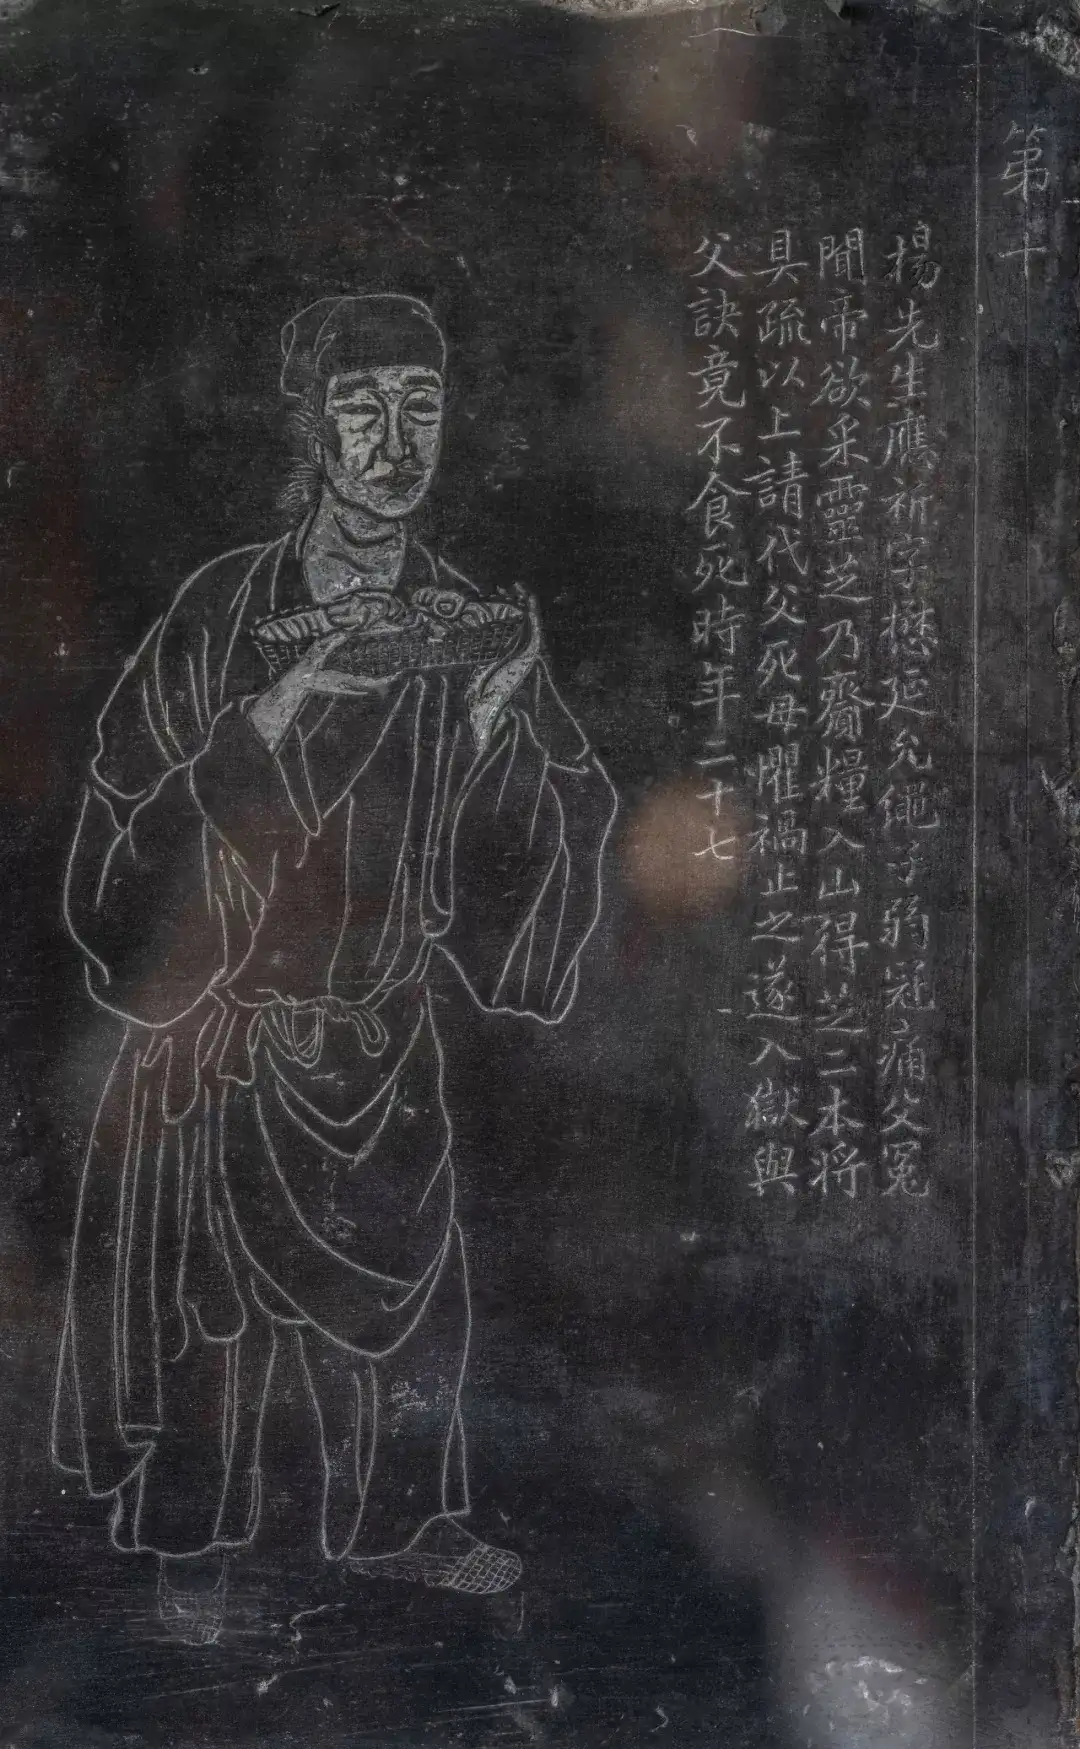 第十
楊先生應祈字懋延允繩子弱冠痛父冤
聞帝欲采靈芝乃齎糧入山得芝二本将
具疏以上請代父死母懼禍止之遂入獄與
父訣竟不食死時年二十七